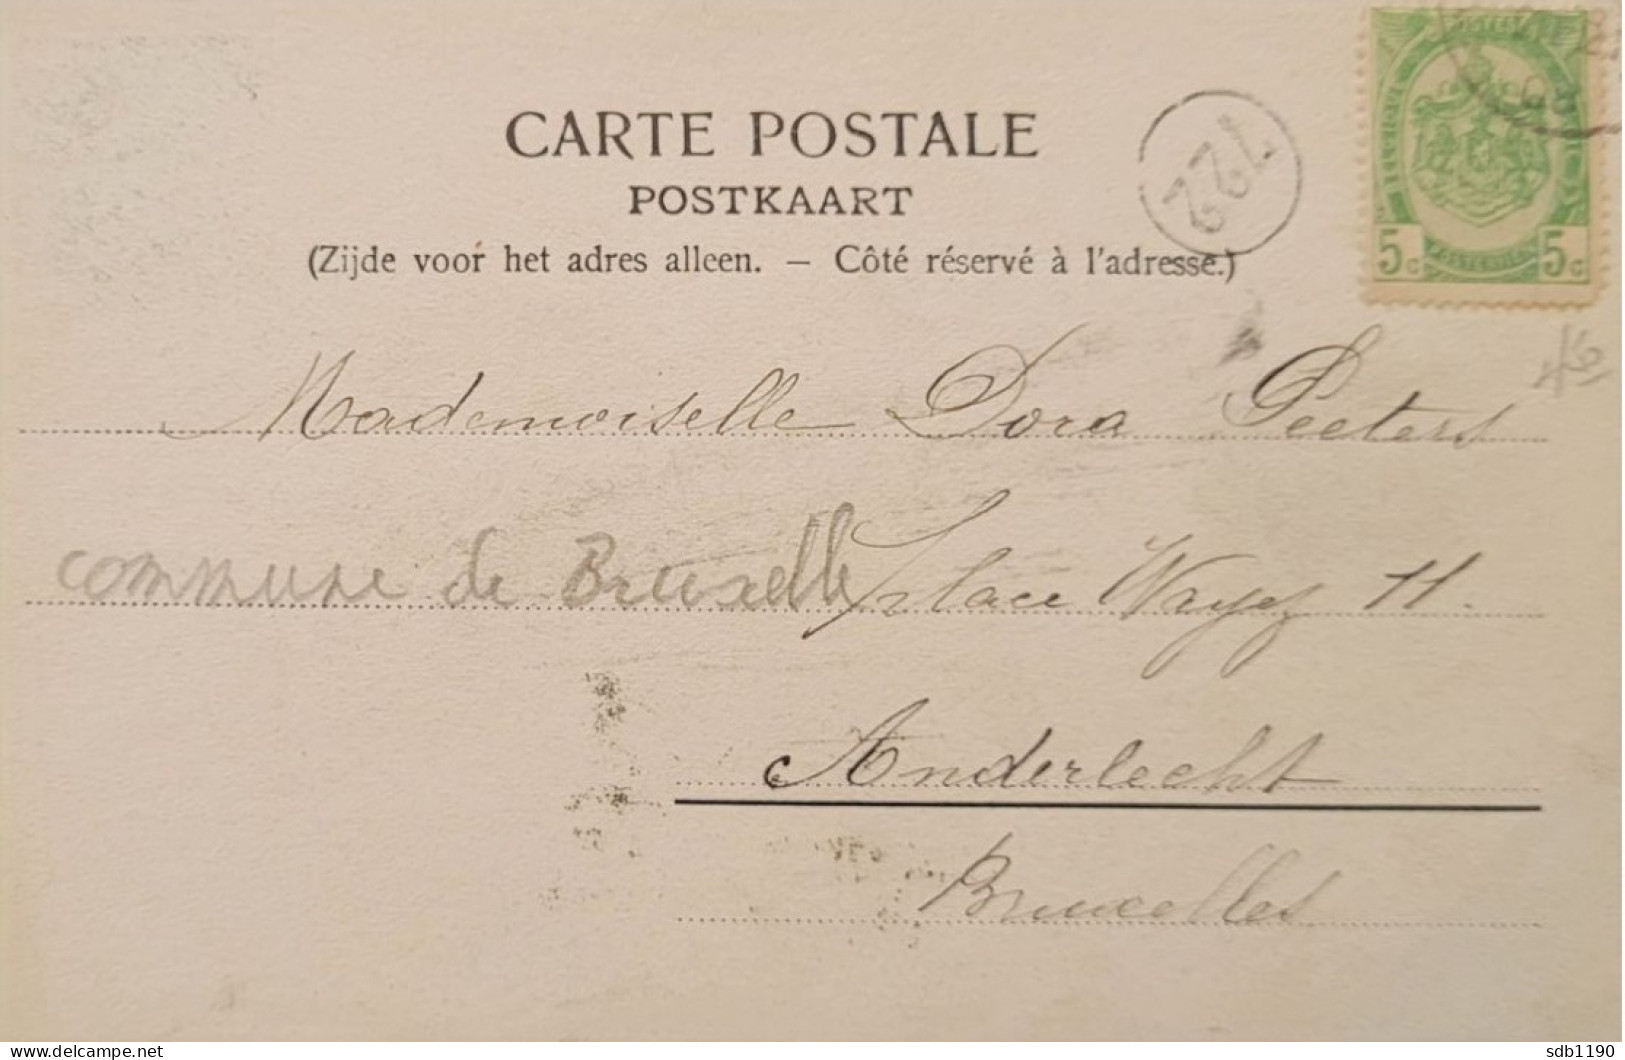 CARTE POSTALE
POSTKAART
(Zijde voor het adres alleen. — Côté réservé à l'adresse.)
722
POSTES
5c 5c
Mademoiselle Dora Peeters
commune de Bruxelle place Wayez 11.
Anderlecht
Bruxelles
sdb1190